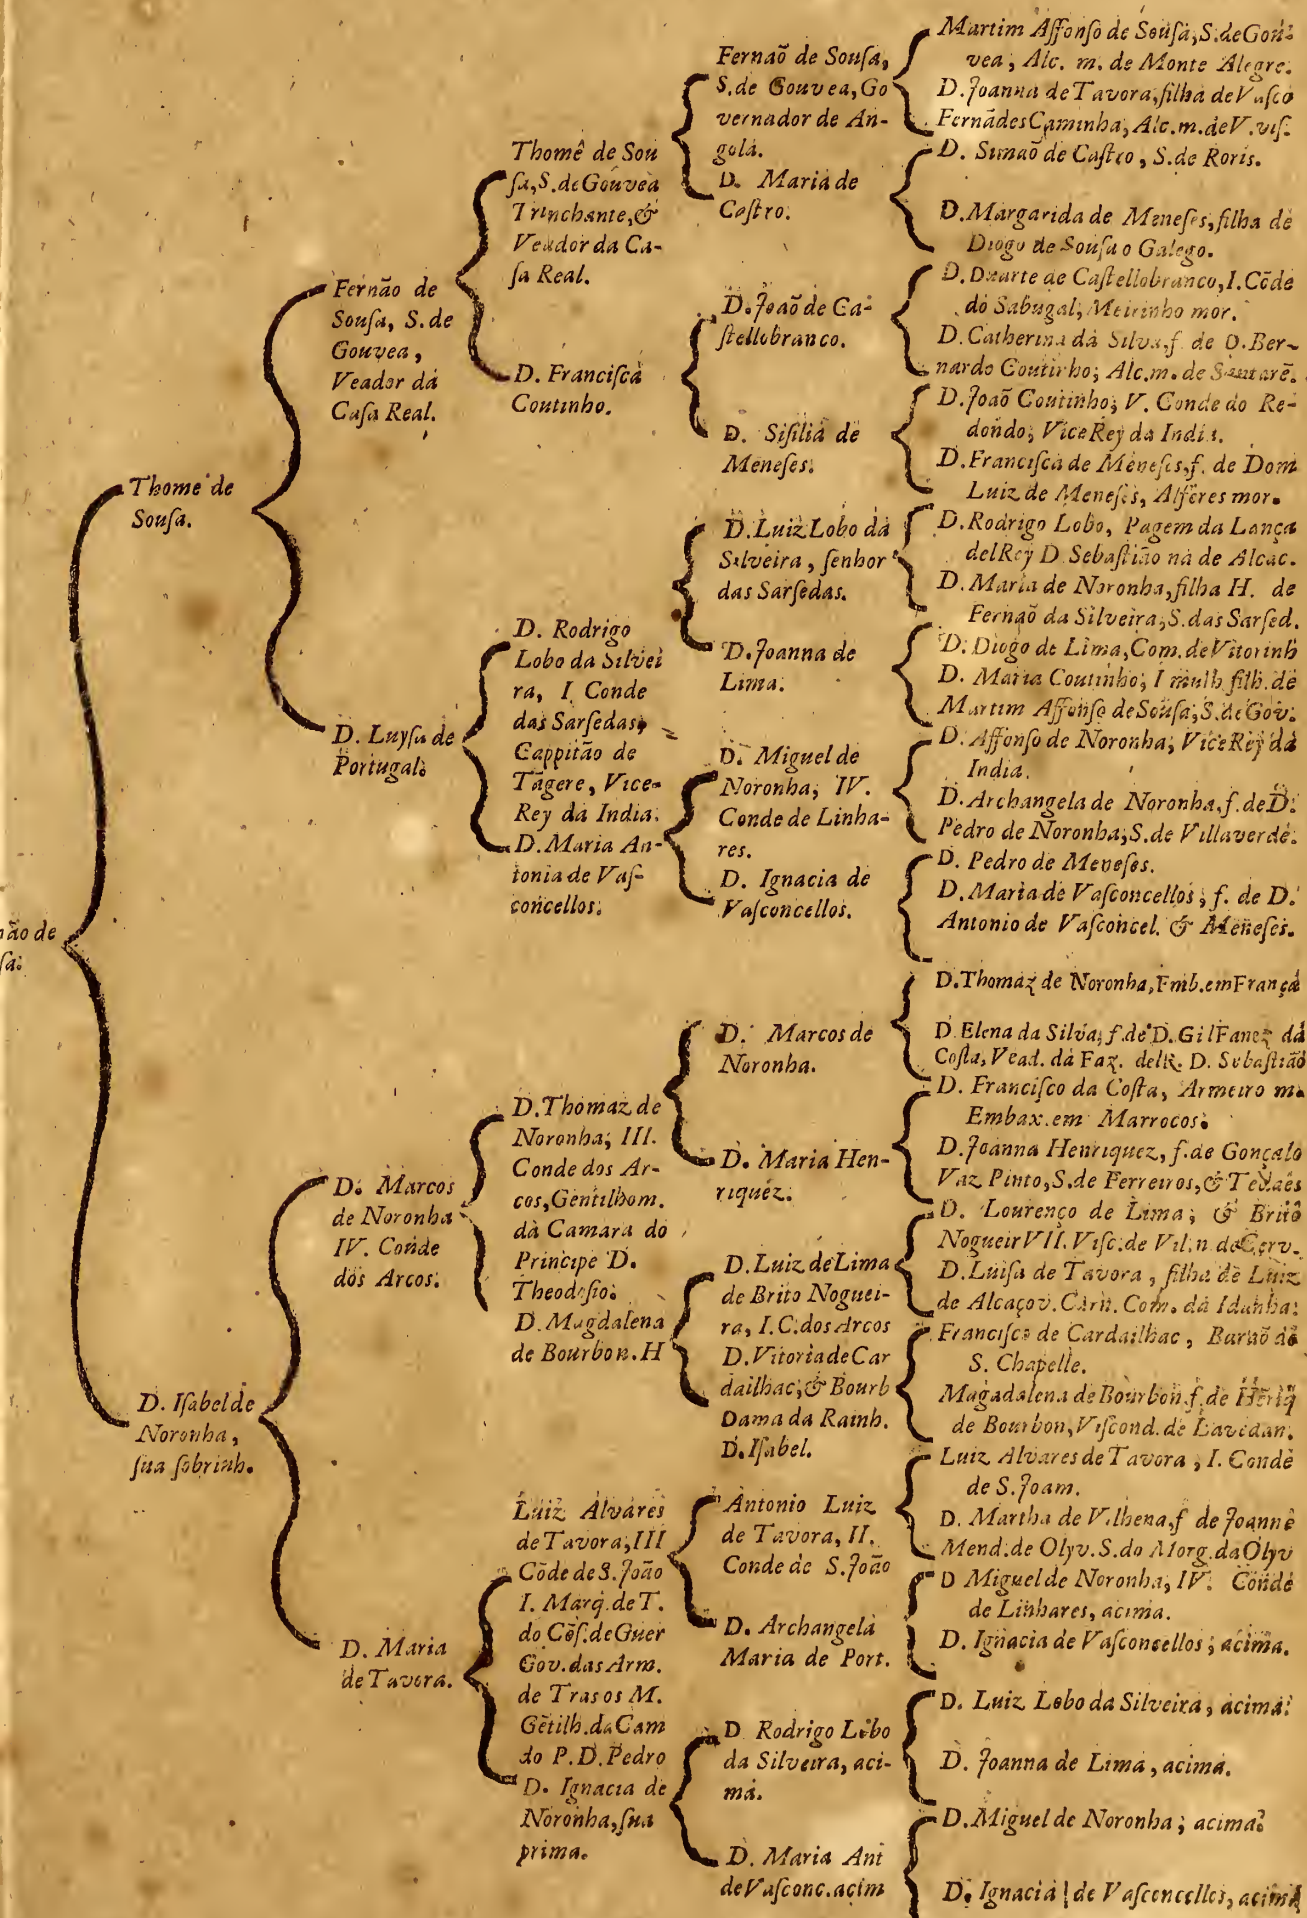 não de
ſa:
Thome de
Souſa.
D. Iſabel de
Noronha,
ſua ſobrinh.
Fernão de
Souſa, S. de
Gouvea,
Veador da
Caſa Real.
D. Luyſa de
Portugal.
D. Marcos
de Noronha
IV. Conde
dos Arcos.
D. Maria
de Tavora.
Thomê de Sou
ſa, S. de Gouvea
Trinchante, &
Veador da Ca-
ſa Real.
D. Franciſca
Coutinho.
D. Rodrigo
Lobo da Silvei
ra, I Conde
das Sarſedas,
Cappitão de
Tãgere, Vice-
Rey da India.
D. Maria An-
tonia de Vaſ-
concellos.
D. Thomaz de
Noronha, III.
Conde dos Ar-
cos, Gentilhom.
da Camara do
Principe D.
Theodoſio.
D. Magdalena
de Bourbon. H
Luiz Alvares
de Tavora, III
Cõde de S. João
I. Marq. de T.
do Cõſ. de Guer
Gov. das Arm.
de Tras os M.
Gẽtilh. da Cam
do P. D. Pedro
D. Ignacia de
Noronha, ſua
prima.
Fernaõ de Souſa,
S. de Gouvea, Go
vernador de An-
gola.
D. Maria de
Caſtro.
D. Joaõ de Ca-
ſtellobranco.
D. Siſilia de
Meneſes.
D. Luiz Lobo da
Silveira, ſenhor
das Sarſedas.
D. Joanna de
Lima.
D. Miguel de
Noronha, IV.
Conde de Linha-
res.
D. Ignacia de
Vaſconcellos.
D. Marcos de
Noronha.
D. Maria Hen-
riquez.
D. Luiz de Lima
de Brito Noguei-
ra, I. C. dos Arcos
D. Vitoria de Car
dailhac, & Bourb
Dama da Rainh.
D. Iſabel.
Antonio Luiz
de Tavora, II.
Conde de S. João
D. Archangela
Maria de Port.
D Rodrigo Lobo
da Silveira, aci-
ma.
D. Maria Ant
de Vaſconc. acim
Martim Affonſo de Souſa, S. de Gou-
vea, Alc. m. de Monte Alegre.
D. Joanna de Tavora, filha de Vaſco
Fernãdes Caminha, Alc. m. de V. viſ.
D. Simaõ de Caſtro, S. de Roris.
D. Margarida de Meneſes, filha de
Diogo de Souſa o Galego.
D. Duarte de Caſtellobranco, I. Cõde
do Sabugal, Meirinho mor.
D. Catherina da Silva, f. de D. Ber-
nardo Coutinho, Alc. m. de Santarẽ.
D. Joaõ Coutinho, V. Conde do Re-
dondo, Vice Rey da India.
D. Franciſca de Meneſes, f. de Dom
Luiz de Meneſes, Alferes mor.
D. Rodrigo Lobo, Pagem da Lança
delRey D Sebaſtião na de Alcac.
D. Maria de Noronha, filha H. de
Fernaõ da Silveira, S. das Sarſed.
D. Diogo de Lima, Com. de Vitorinh
D. Maria Coutinho, I mulh. filh. de
Martim Affonſo de Souſa, S. de Gov.
D. Affonſo de Noronha, Vice Rey da
India.
D. Archangela de Noronha, f. de D.
Pedro de Noronha, S. de Villaverde.
D. Pedro de Meneſes.
D. Maria de Vaſconcellos, f. de D.
Antonio de Vaſconcel. & Meneſes.
D. Thomaz de Noronha, Emb. em França
D. Elena da Silva, f. de D. Gil Eanez da
Coſta, Vead. da Faz. delR. D. Sebaſtião
D. Franciſco da Coſta, Armeiro m.
Embax. em Marrocos.
D. Joanna Henriquez, f. de Gonçalo
Vaz Pinto, S. de Ferreiros, & Tẽdaes
D. Lourenço de Lima, & Brito
Nogueir VII. Viſc. de Vil. n. de Cerv.
D. Luiſa de Tavora, filha de Luiz
de Alcaçov. Carn. Com. da Idanha.
Franciſco de Cardailhac, Baraõ de
S. Chapelle.
Magadalena de Bourbon, f. de Hẽriq
de Bourbon, Viſcond. de Lavedan.
Luiz Alvares de Tavora, I. Conde
de S. Joam.
D. Martha de Vilhena, f de Joanne
Mend. de Olyv. S. do Morg. da Olyv
D Miguel de Noronha, IV. Conde
de Linhares, acima.
D. Ignacia de Vaſconcellos, acima.
D. Luiz Lobo da Silveira, acima.
D. Joanna de Lima, acima.
D. Miguel de Noronha, acima.
D. Ignacia de Vaſconcellos, acima